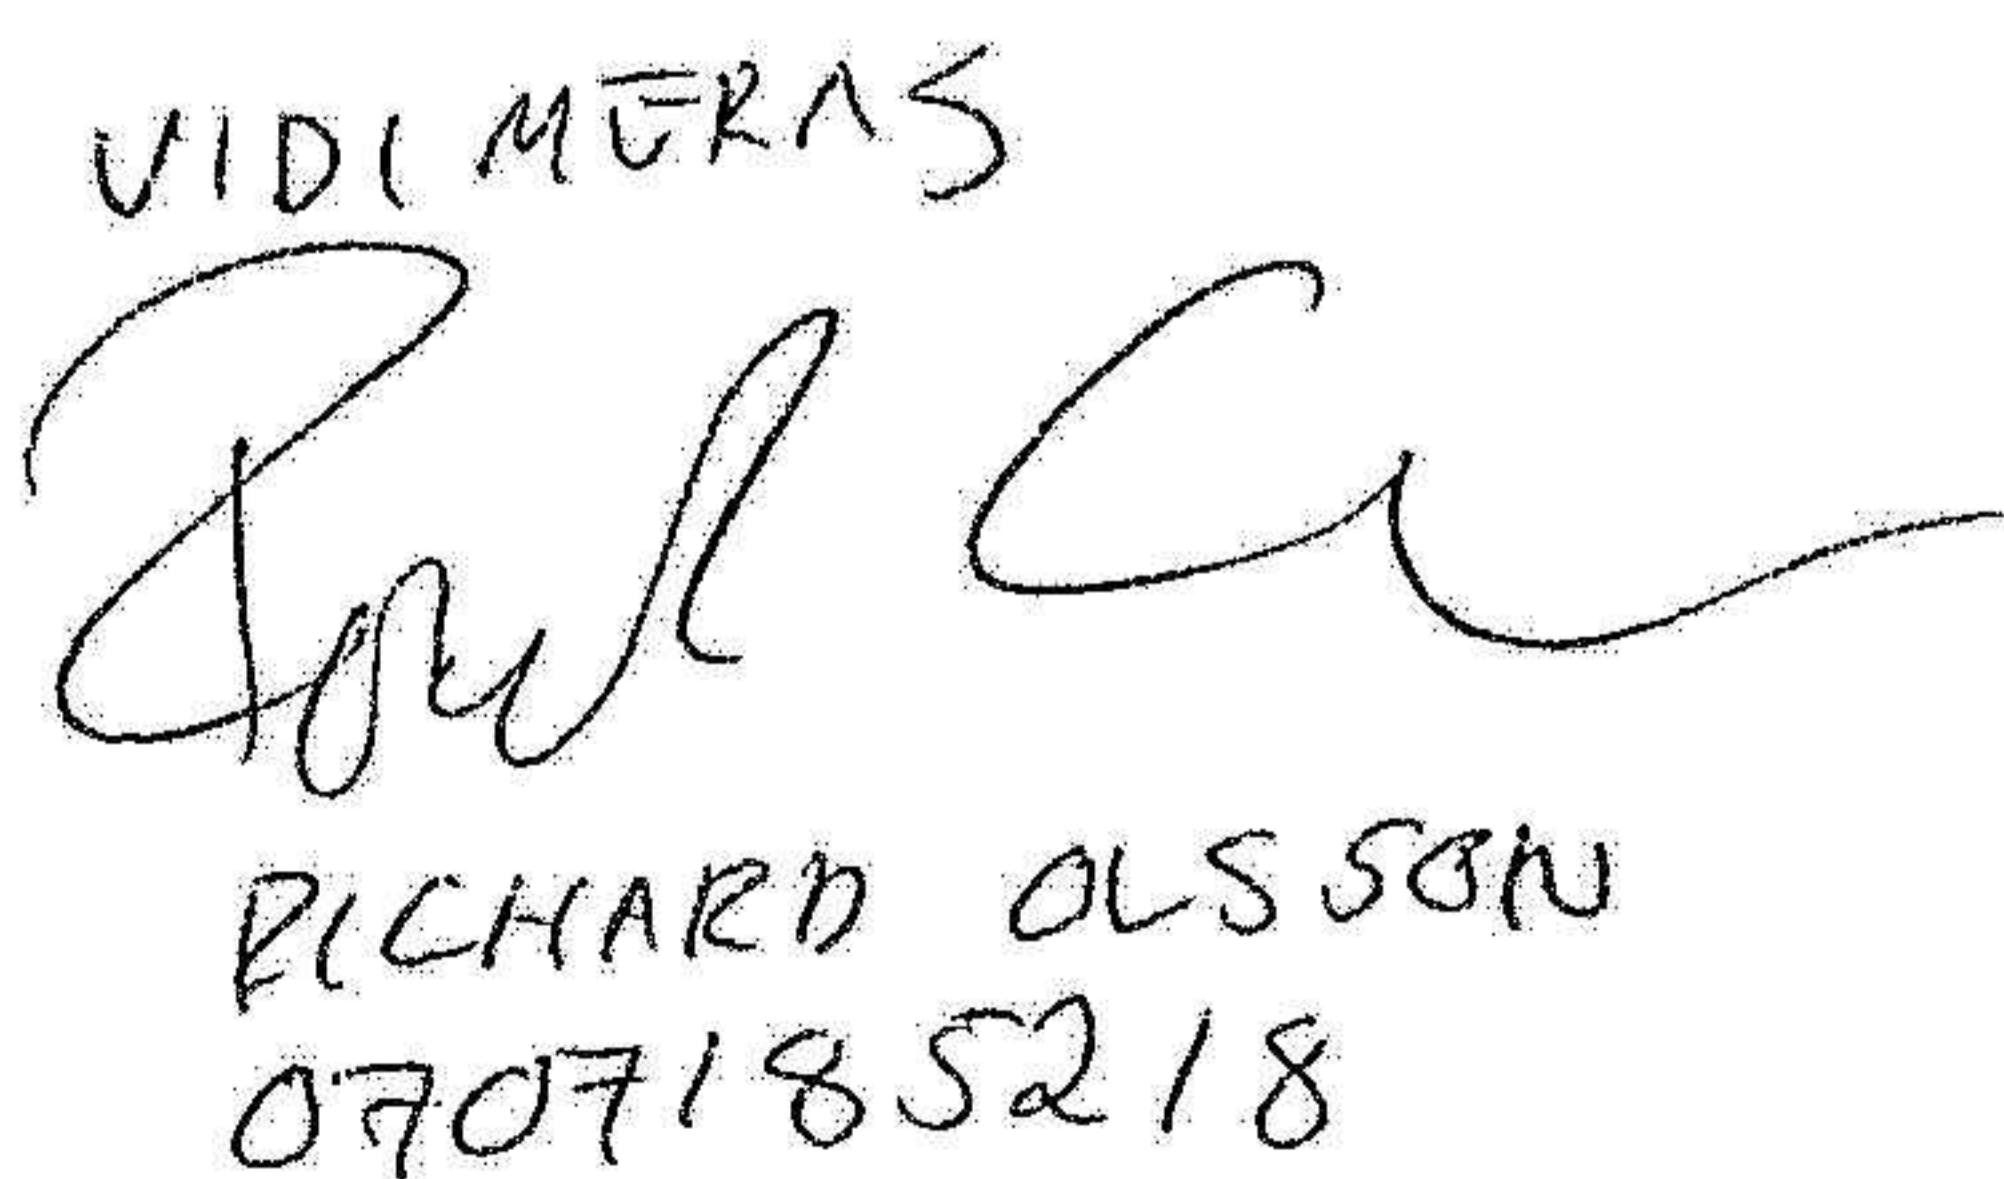 VIDIMERAS
RICHARD OLSSON
0707185218